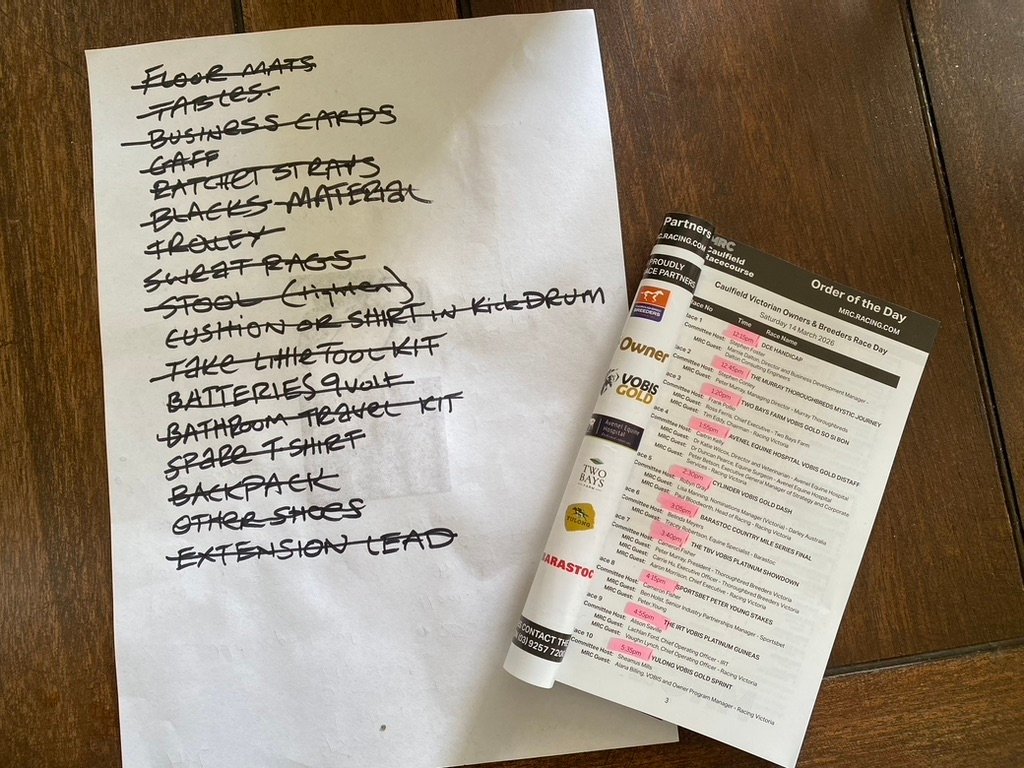 FLOOR MATS
TABLES.
BUSINESS CARDS
GAFF
RATCHET STRAPS
BLACKS MATERIAL
TROLEY
SWEAT RAGS
STOOL (tighten)
CUSHION OR SHIRT IN KICKDRUM
TAKE LITTLE TOOL KIT
BATTERIES 9 VOLT
BATHROOM TRAVEL KIT
SPARE T SHIRT
BACKPACK
OTHER SHOES
EXTENSION LEAD
Partners
RC.RACING.COM
PROUDLY
ACE PARTNERS
BREEDERS
Owner
VOBIS
GOLD
Avenel Equine
Hospital
TWO
BAYS
YULONG
BARASTOC
CONTACT THE
(03) 9257 7200
MRC
Caulfield
Racecourse
Order of the Day
MRC.RACING.COM
Caulfield Victorian Owners & Breeders Race Day
Saturday 14 March 2026
Race No Time Race Name
ace 1 12:15pm DCE HANDICAP
Committee Host: Stephen Foster
MRC Guest: Marcia Dalton, Director and Business Development Manager -
Dalton Consulting Engineers
ace 2 12:45pm THE MURRAY THOROUGHBREDS MYSTIC JOURNEY
Committee Host: Stephen Conley
MRC Guest: Peter Murray, Managing Director - Murray Thoroughbreds
ace 3 1:20pm TWO BAYS FARM VOBIS GOLD SO SI BON
Committee Host: Frank Pollio
MRC Guest: Ross Ferris, Chief Executive - Two Bays Farm
MRC Guest: Tim Eddy, Chairman - Racing Victoria
ace 4 1:55pm AVENEL EQUINE HOSPITAL VOBIS GOLD DISTAFF
Committee Host: Caitrin Kelly
MRC Guest: Dr Katie Wilcox, Director and Veterinarian - Avenel Equine Hospital
MRC Guest: Dr Duncan Pearce, Equine Surgeon - Avenel Equine Hospital
MRC Guest: Peter Betson, Executive General Manager of Strategy and Corporate
Services - Racing Victoria
ace 5 2:30pm CYLINDER VOBIS GOLD DASH
Committee Host: Robyn Gray
MRC Guest: Lisa Manning, Nominations Manager (Victoria) - Darley Australia
MRC Guest: Paul Bloodworth, Head of Racing - Racing Victoria
ace 6 3:05pm BARASTOC COUNTRY MILE SERIES FINAL
Committee Host: Belinda Meyers
MRC Guest: Tracey Robertson, Equine Specialist - Barastoc
ace 7 3:40pm THE TBV VOBIS PLATINUM SHOWDOWN
Committee Host: Cameron Fisher
MRC Guest: Peter Murray President - Thoroughbred Breeders Victoria
MRC Guest: Carrie Hu, Executive Officer - Thoroughbred Breeders Victoria
MRC Guest: Aaron Morrison, Chief Executive - Racing Victoria
ace 8 4:15pm SPORTSBET PETER YOUNG STAKES
Committee Host: Cameron Fisher
MRC Guest: Ben Holst, Senior Industry Partnerships Manager - Sportsbet
MRC Guest: Peter Young
ace 9 4:55pm THE IRT VOBIS PLATINUM GUINEAS
Committee Host: Alison Saville
MRC Guest: Lachlan Ford, Chief Operating Officer - IRT
MRC Guest: Vaughn Lynch, Chief Operating Officer - Racing Victoria
ace 10 5:35pm YULONG VOBIS GOLD SPRINT
Committee Host: Sheamus Mills
MRC Guest: Alana Billing, VOBIS and Owner Program Manager - Racing Victoria
3